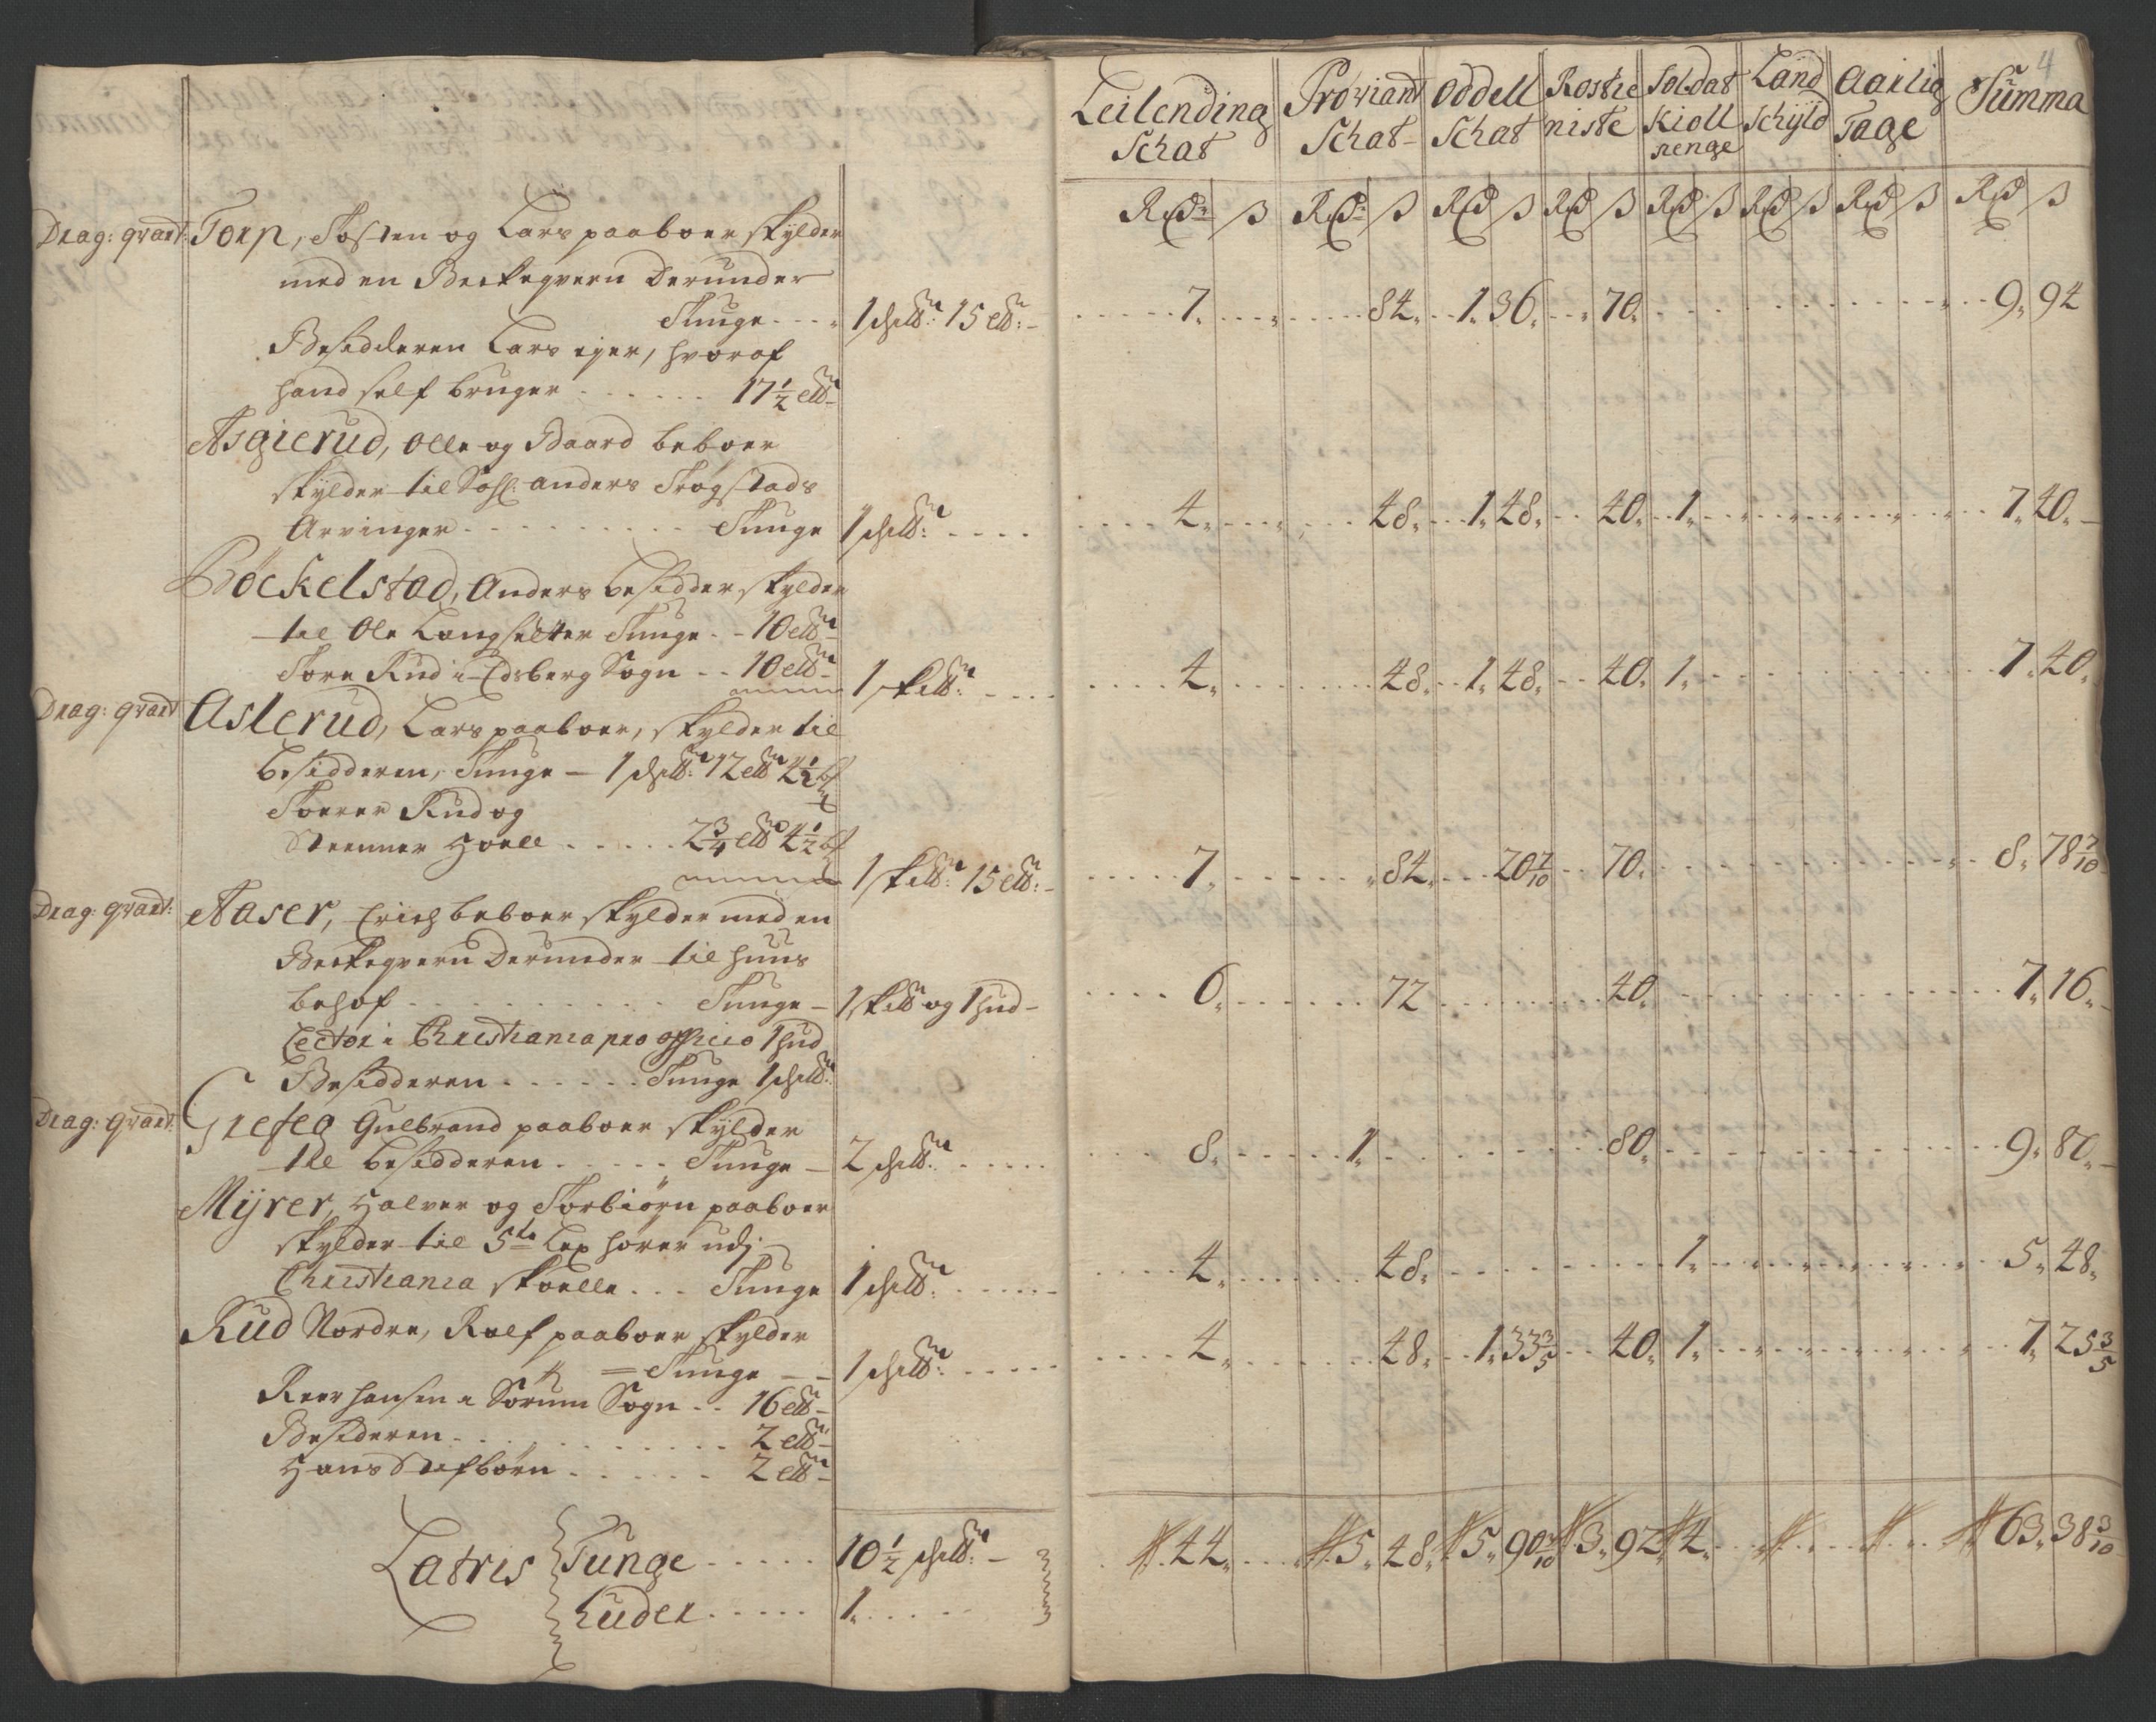 Drag: qvart: Torp, Tosten og Lars paaboer skylder
med en Beckeqvern Derunder
Tunge . . . 1 skilb: 15 lb:
Besidderen Lars ejer, hvoraf
hand self bruger . . . . . . 17 1/2 lb
Asgierud, Olle og Baard beboer
skÿlder til Sahl: Anders Skogstads
Arvinger . . . . . . . . Tunge 1 skilb: . . . .
Böckelstad, Anders besidder, skylder
til Ole Langsetter Tunge . . 10 lb
Tore Rud i Edsberg Sogn . . 10 lb
1 skilb: . . . .
Drag: qvart Aslerud, Lars paaboer, skylder til
besidderen, Tunge — 1 skilb: 12 lb
Rud og
2 3/4 lb
1 skilb: 15 lb:
Drag: qvart: Aaser, Erich beboer skylder med en
Beckeqvern Derunder til huus
behof . . . . . . . . . . Tunge 1 skilb og 1 hud
Lector i Christiania pro officio 1 hud
Besidderen . . . . . . Tunge 1 skilb:
Drag: qvart: Grefeg Gulbrand paaboer skÿlder
til besidderen . . . . . Tunge 2 skilb: . . . . .
Mÿrer, Halvor og Torbiörn paaboer
skylder til 5te Lex hører udj
Christiania skoelle . . . Tunge 1 skilb: . . . . . .
Rud Nordre, Rolf paaboer skylder
Tunge 1 skilb: . . . . .
Peer Hansen i Sorum Sogn . . 16 lb
Besideren . . . . . . . . . . . 2 lb
Hans Stifbörn . . . . . . 2 lb
Latris Tunge . . . . . 10 1/2 skilb:
Huder . . . . . 1. . . . . .
4
Leilending Schat Proviant Schat Oddell Schat Rostie niste Soldat Kioll penge Land Schÿld Aarlig Tage Summa
Rd ß Rd ß Rd ß Rd ß Rd ß Rd ß Rd ß Rd ß
7. 84. 1. 36. 70. 9. 94
4. 48. 1. 48. 40. 1. 7. 40.
4. 48. 1. 48. 40. 1. 7. 40.
7. 84. 20 7/10 70. 8. 78 7/10
6. 72 40. 7. 16.
8. 1. 80. 9. 80.
4. 48. 1. 5. 48.
4. 48. 1. 33 3/5 40. 1. 7. 25 3/5
44. 5. 48. 5. 90 3/10 3. 92. 4. 63. 38 3/10